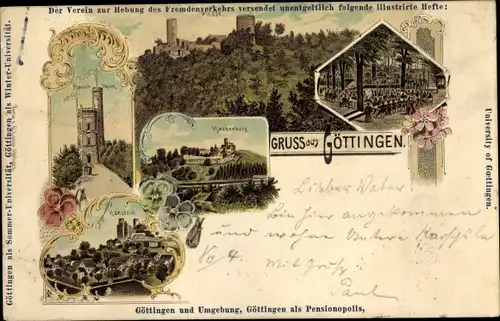 Der Verein zur Hebung des Fremdenverkehrs versendet unentgeltlich folgende illustrirte Hefte:
Göttingen als Sommer-Universität, Göttingen als Winter-Universität.
University of Goettingen.
Plesse.
Hardenberg
Hanstein
GRUSS aus GÖTTINGEN.
Lieber Vater
Bin hier angekommen
und wohne Untere
Mit Gruß
Paul
Göttingen und Umgebung, Göttingen als Pensionopolis,